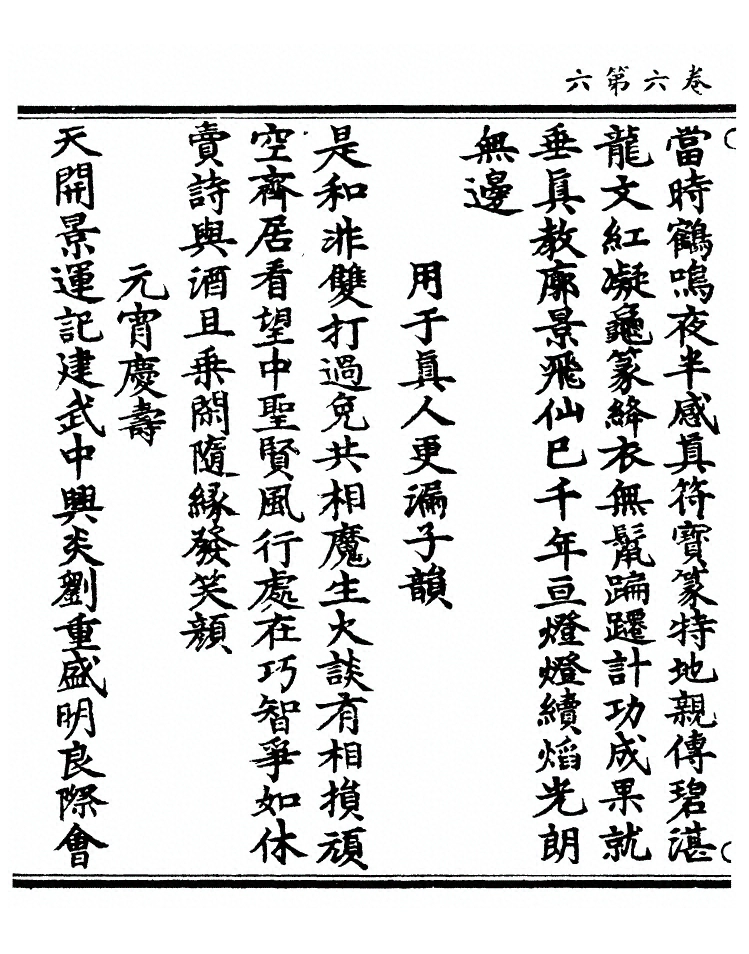 卷六第六
當時鶴鳴夜半感真符寶篆特地親傳碧湛
龍文紅凝龜篆絳衣無鬣蹁躚計功成果就
垂眞教廓景飛仙巳千年亘燈燈續焰光朗
無邊
用于眞人更漏子韻
是和非雙打過免共相魔生火談有相損頑
空齊居看望中聖賢風行處在巧智爭如休
賣詩與酒且乗閑隨縁發笑顔
元宵慶壽
天開景運記建武中興炎劉重盛明良際會